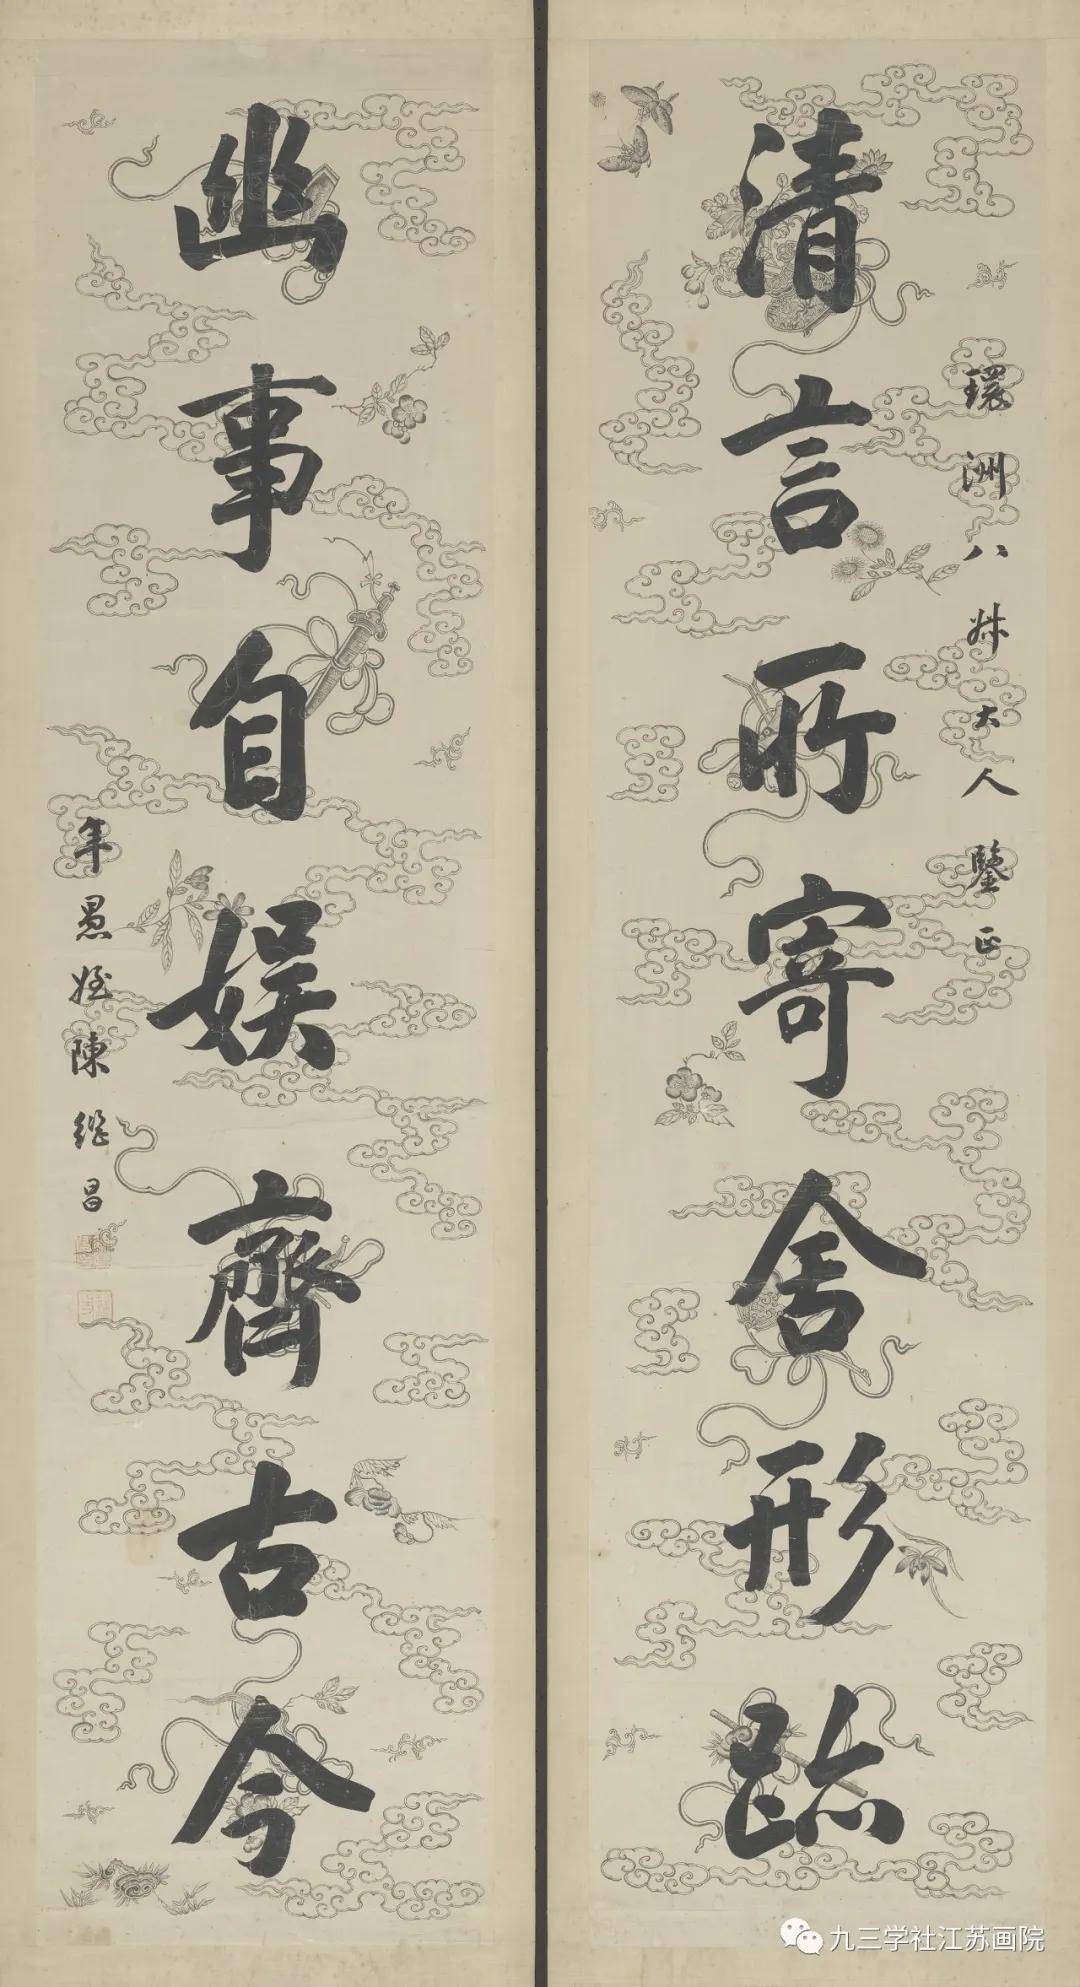 環洲八叔大人鑒正
清言所寄舍形跡
幽事自娱齊古今
年愚姪陳繼昌
九三学社江苏画院